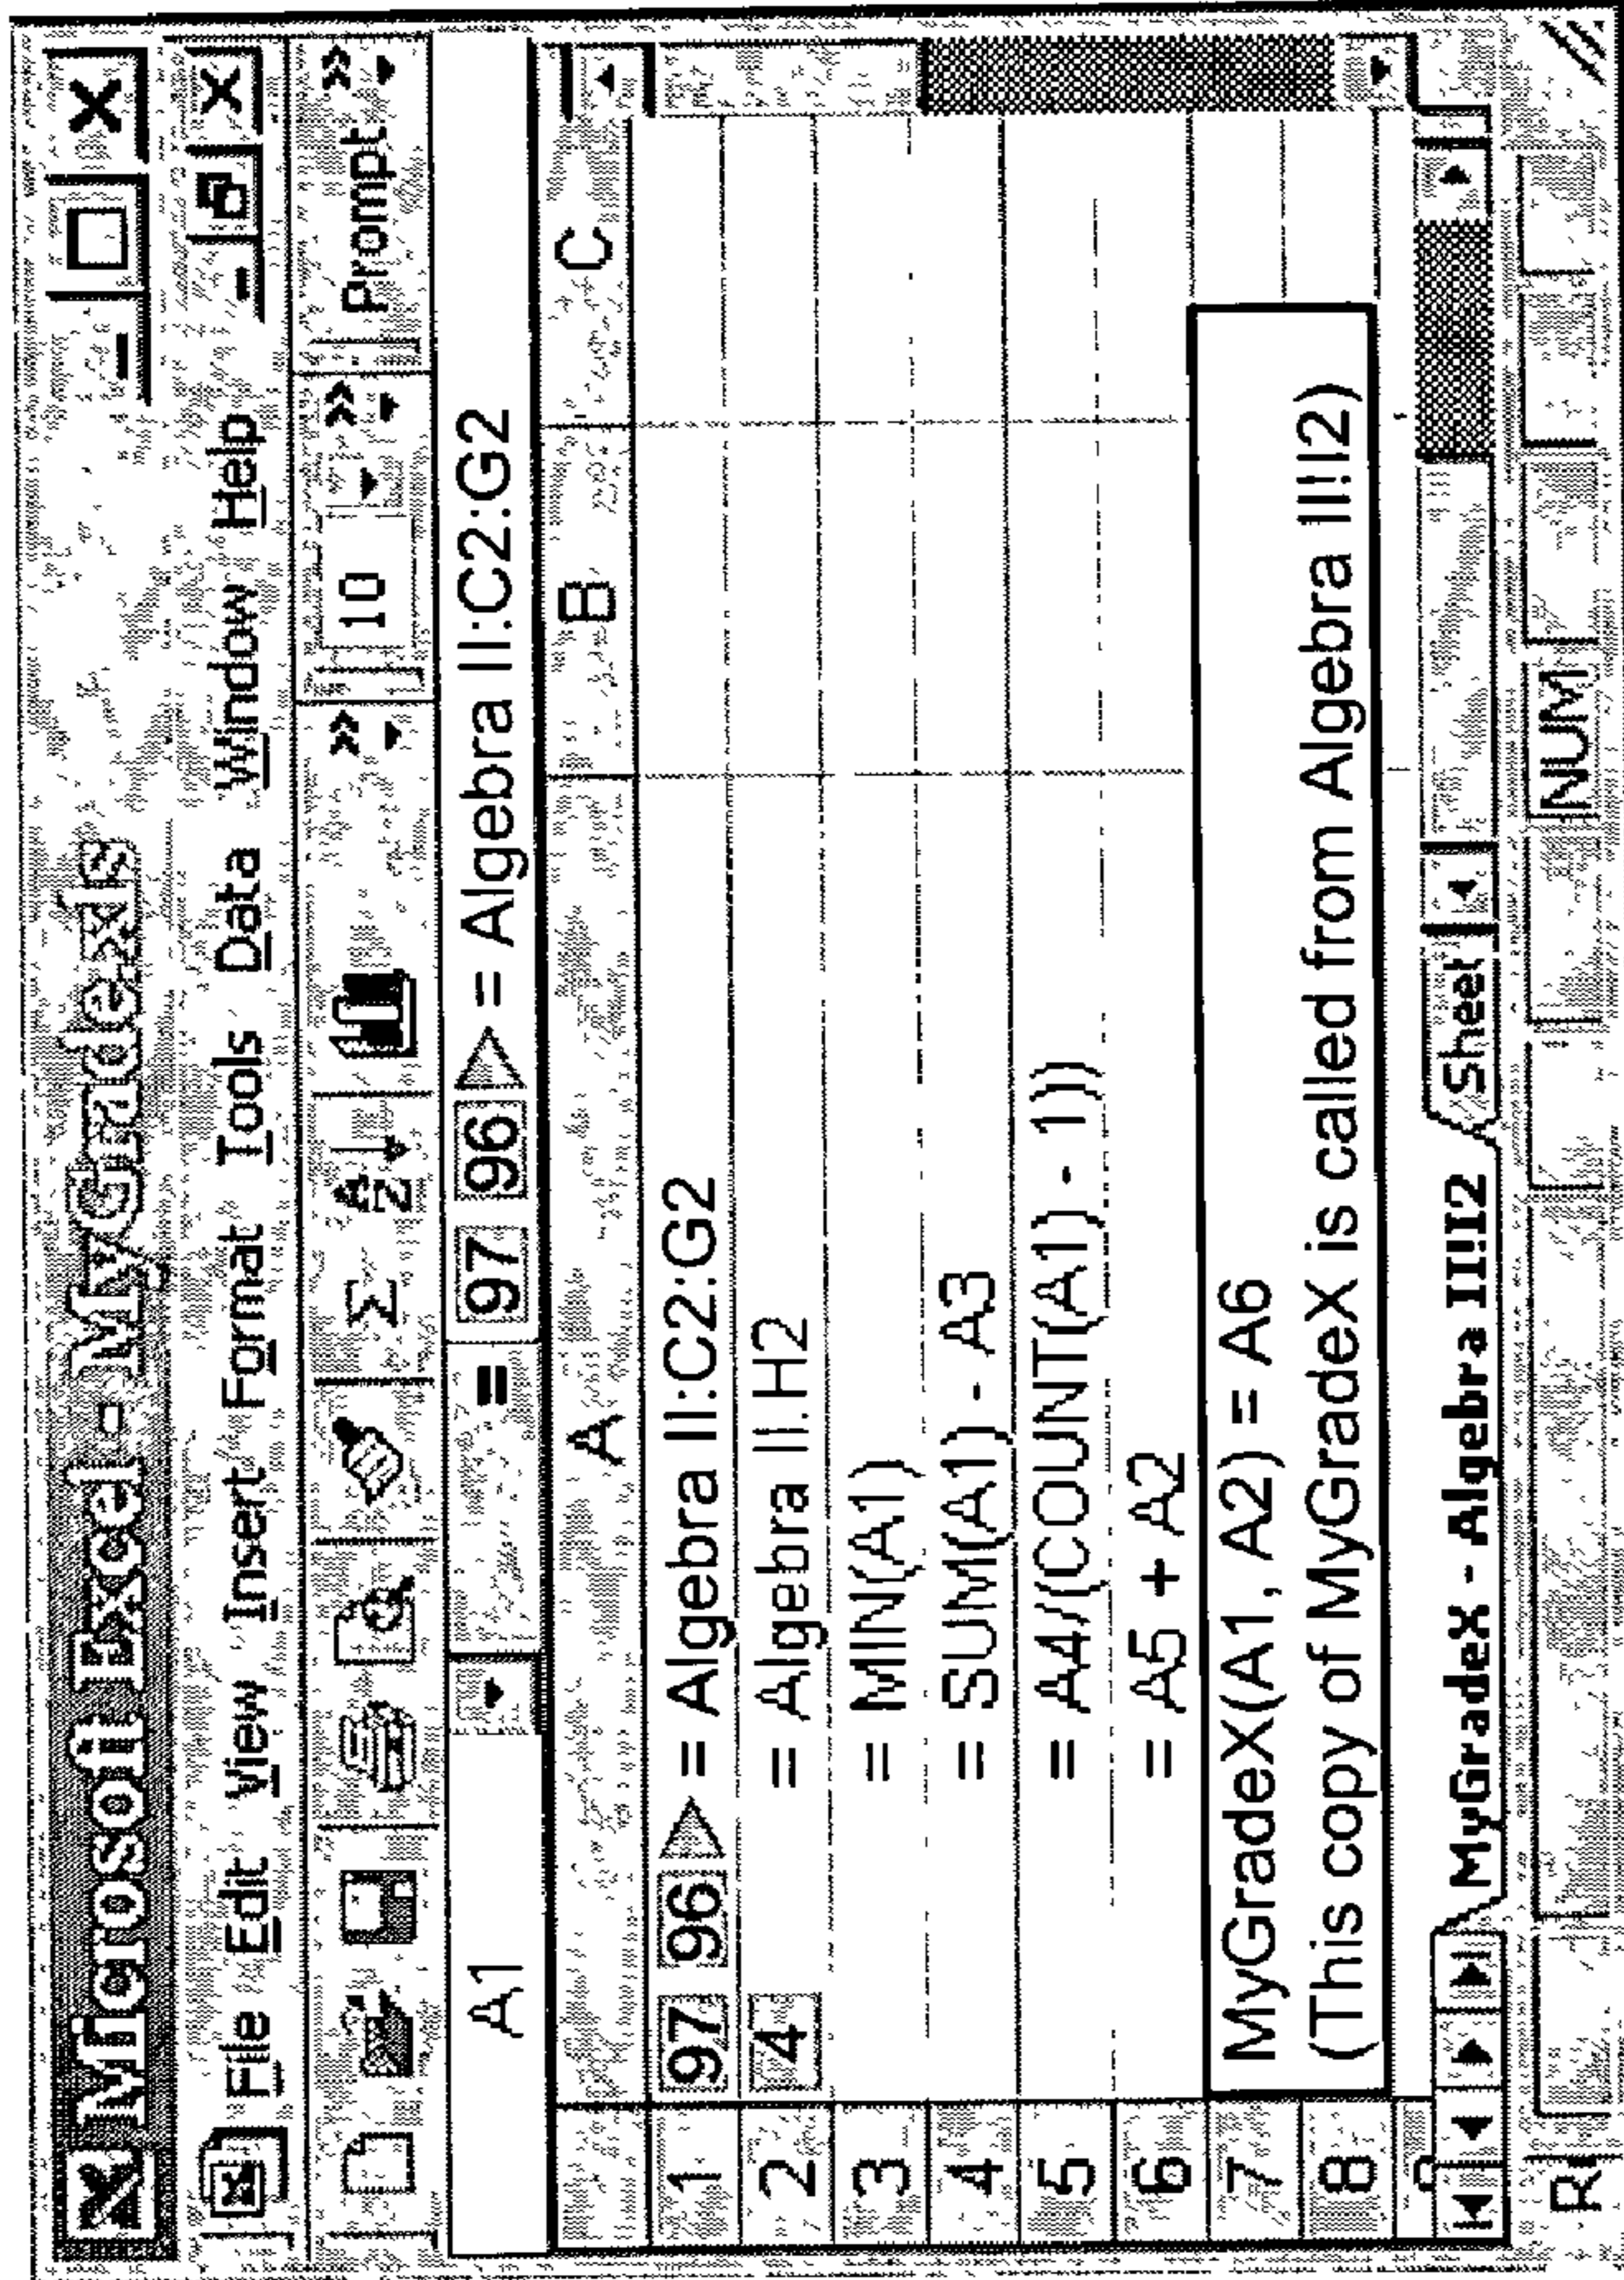 Microsoft Excel - MyGrade.xls
File Edit View Insert Format Tools Data Window Help
10 Prompt
A1 = 97 96 = Algebra II:C2:G2
A B C
1 97 96 = Algebra II:C2:G2
2 4 = Algebra II.H2
3 = MIN(A1)
4 = SUM(A1) - A3
5 = A4/(COUNT(A1) - 1))
6 = A5 + A2
7 MyGradeX(A1, A2) = A6
8 (This copy of MyGradeX is called from Algebra II!I2)
MyGradeX - Algebra II!I2 Sheet
NUM